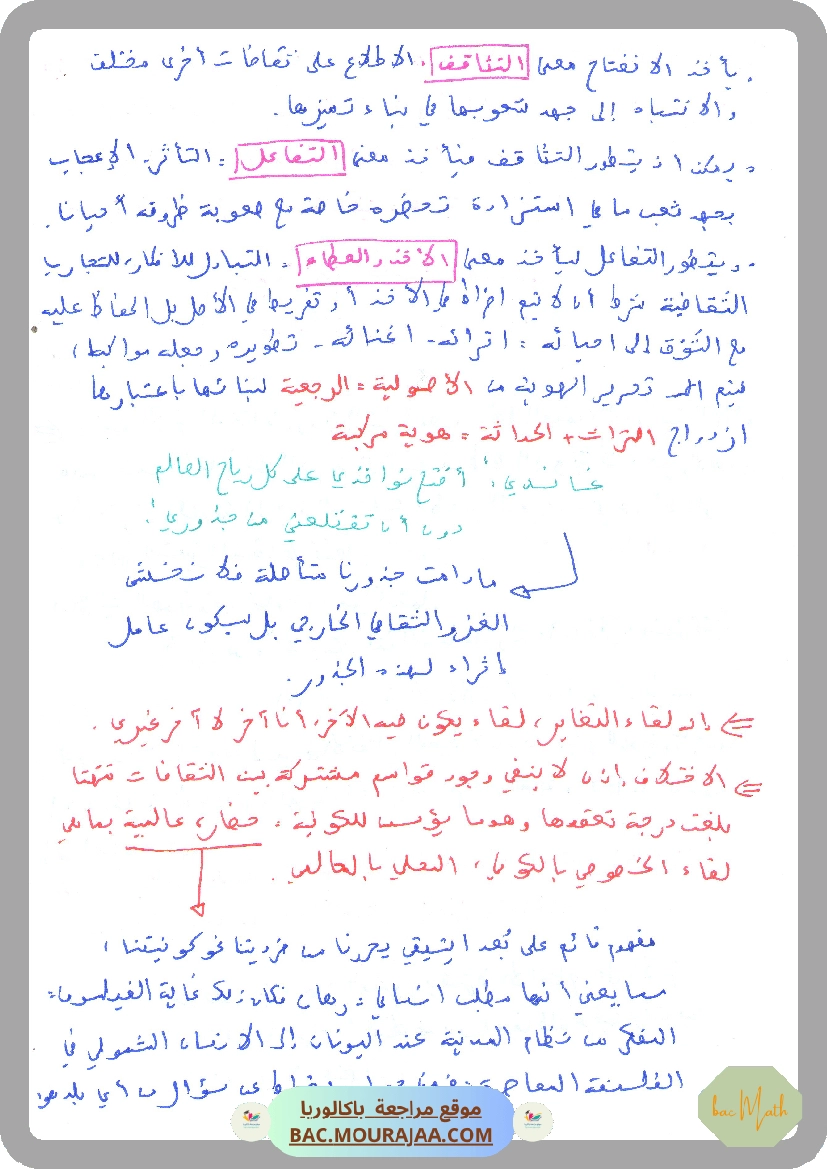 . يأخذ الانفتاح معنى التثاقف. الاطلاع على ثقافات أخرى مختلفة
والانتباه إلى جهد شعوبها في بناء تميزها.
. يمكن أن يتطور التثاقف فيأخذ معنى التفاعل = التأثر، الإعجاب
بجهد شعب ما في استزادة تحضره خاصة مع صعوبة ظروفه أحيانا.
. ويتطور التفاعل ليأخذ معنى الأخذ والعطاء = التبادل للأفكار، للتجارب
الثقافية شرط أن لا نقع إفراط في الأخذ أو تفريط في الأصل بل الحفاظ عليه
مع التوق إلى إحيائه = إثرائه - إغنائه - تطويره وجعله مواكبا،
فيتم تحرير الهوية من الأصولية = الرجعية لبنائها باعتبارها
ازدواج التراث + الحداثة = هوية مركبة
غاندي: "أفتح نوافذي على كل رياح العالم
دون أن تقتلعني من جذوري".
مادامت جذورنا متأصلة فلا نخشى
الغزو الثقافي الخارجي بل سيكون عامل
إثراء لهذه الجذور.
⇐ إنه لقاء التغاير، لقاء يكون فيه الآخر، أنا آخر لا آخر غيري.
⇐ الاختلاف إذن لا ينفي وجود قواسم مشتركة بين الثقافات مهما
بلغت درجة تعقدها وهو ما يؤسس للكونية = حضارة عالمية بما هي
لقاء الخصوصي بالكوني، المحلي بالعالمي.
مفهوم قائم على بعد إيتيقي يحررنا من فرديتنا نحو كونيتنا،
مما يعني أنها مطلب إنساني = رهان فكان ذلك غاية الفيلسوف =
المفكر من نظام المدينة عند اليونان إلى الإنسان الشمولي في
الفلسفة المعاصرة سقراط عن سؤال من أي بلد هو
موقع مراجعة باكالوريا
BAC.MOURAJAA.COM
bac Math